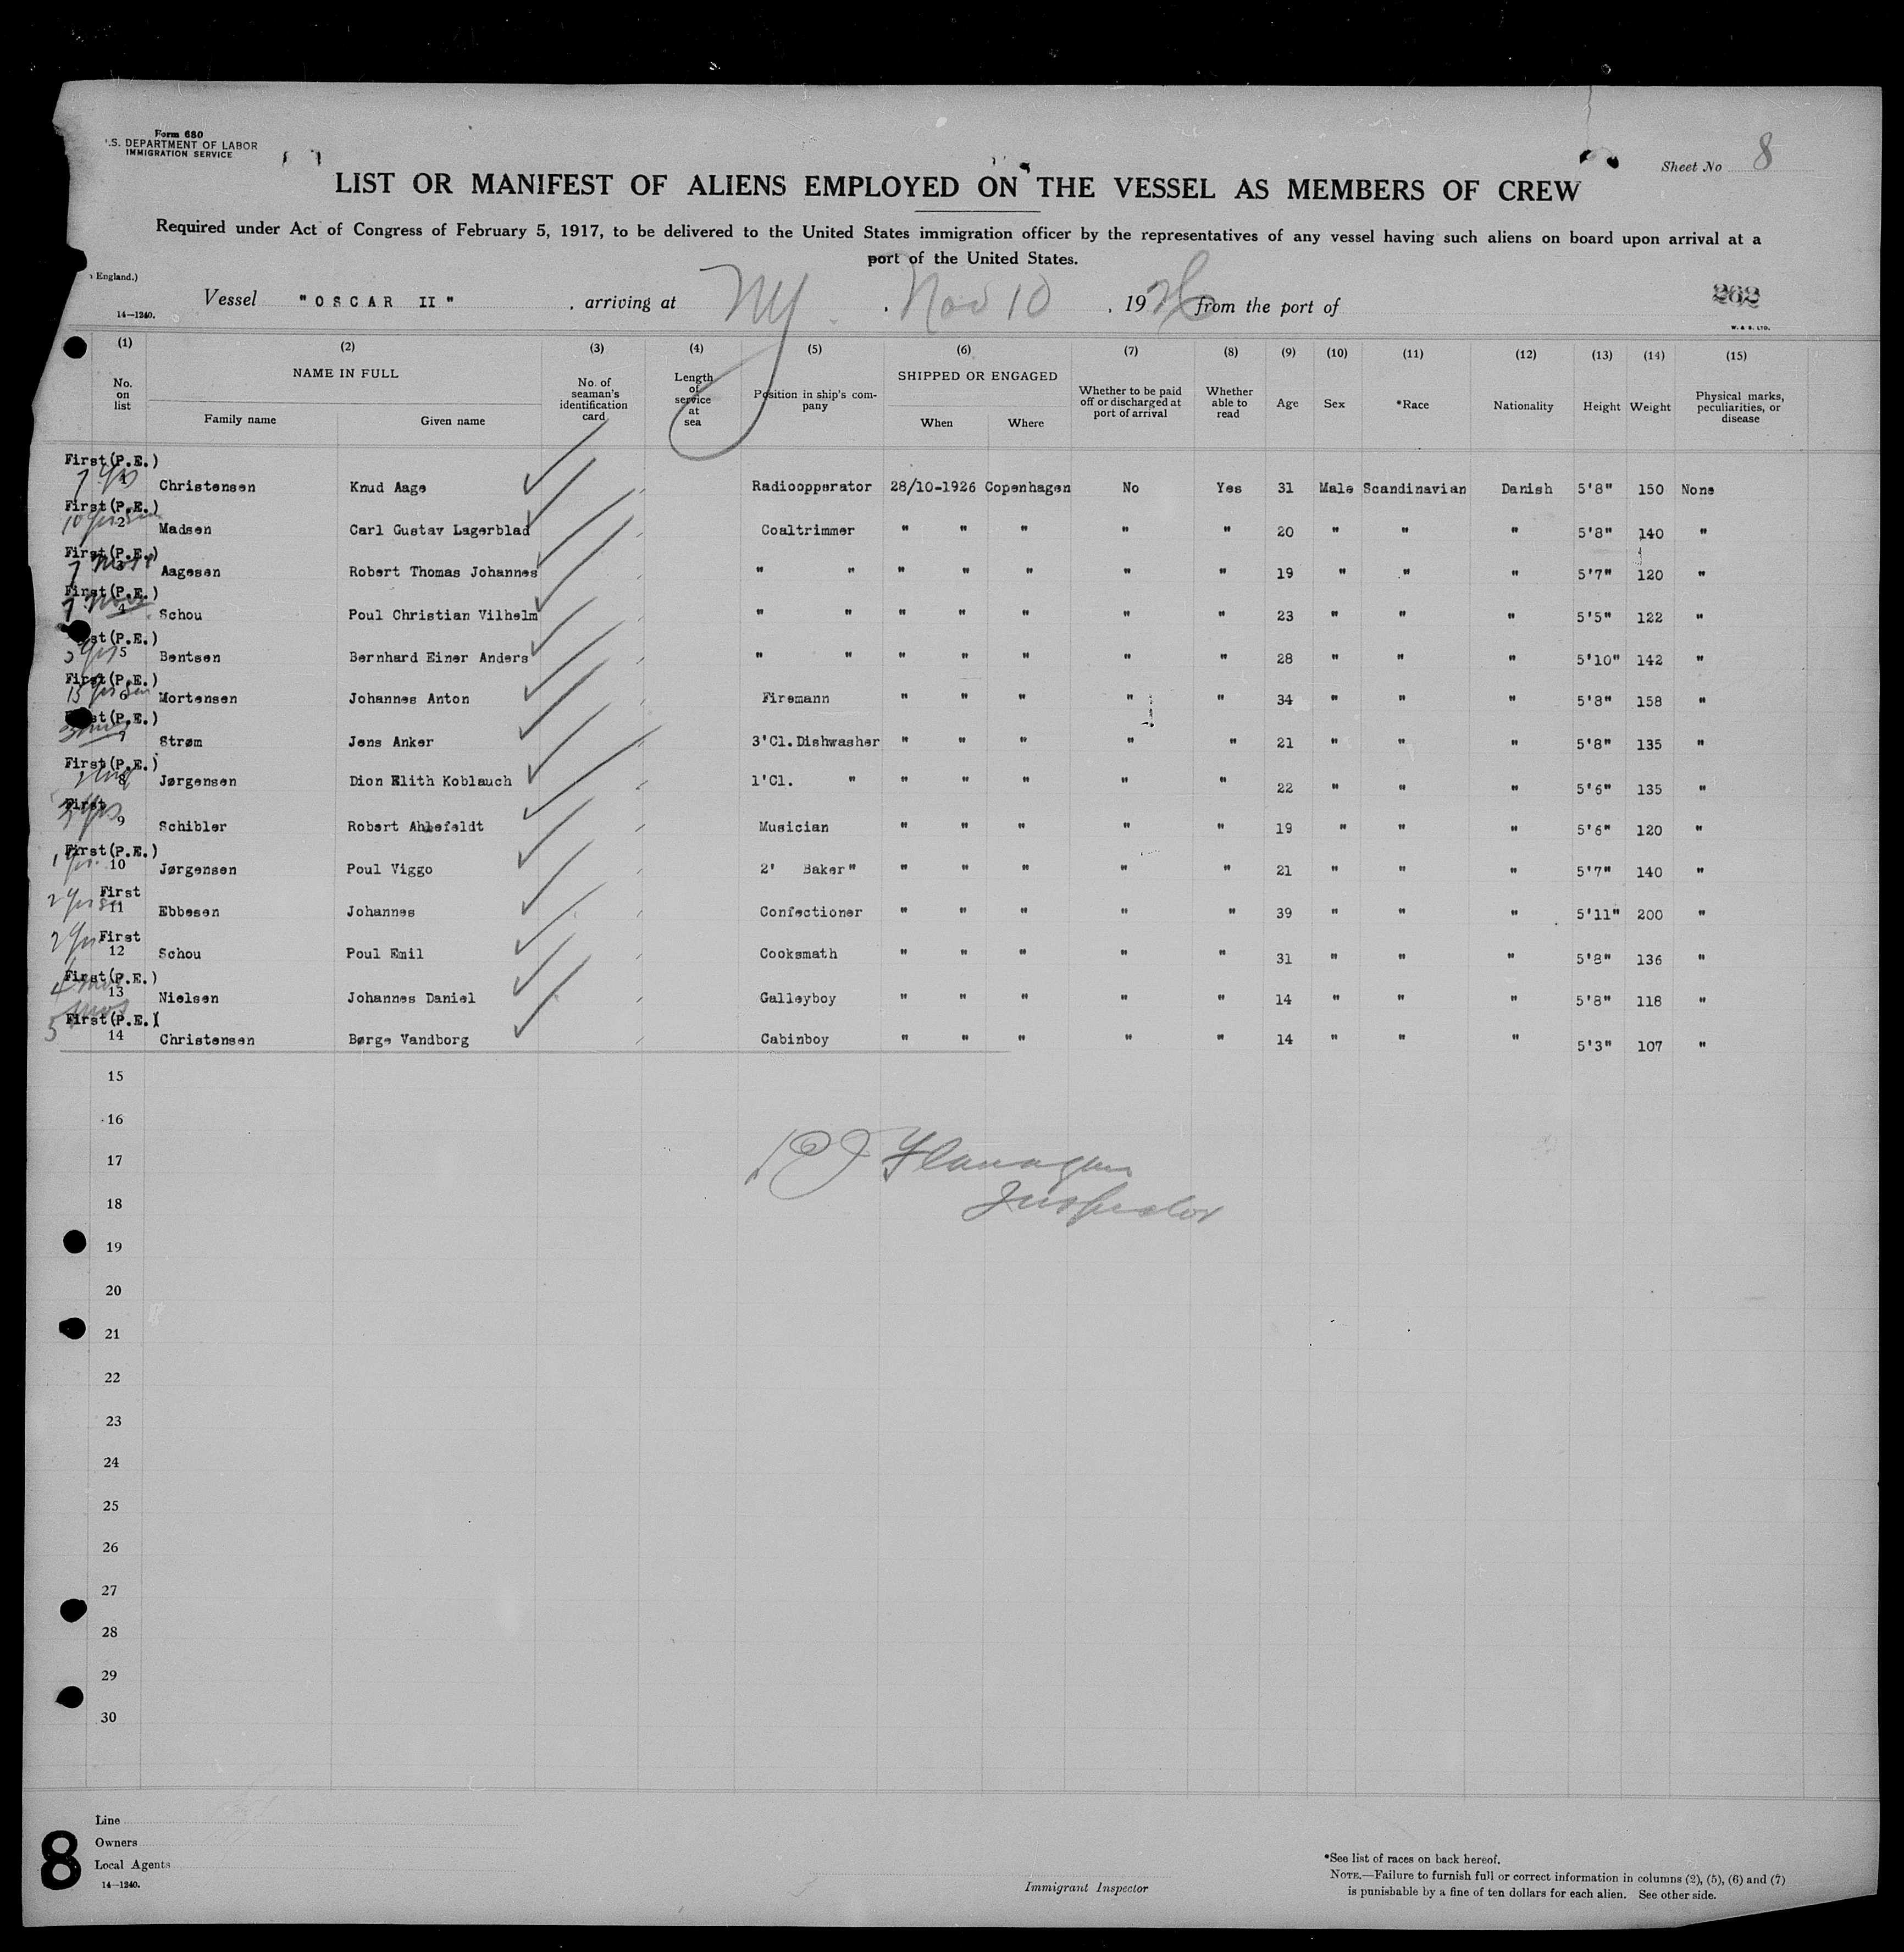 Form 680
.S. DEPARTMENT OF LABOR
IMMIGRATION SERVICE
Sheet No 8
LIST OR MANIFEST OF ALIENS EMPLOYED ON THE VESSEL AS MEMBERS OF CREW
Required under Act of Congress of February 5, 1917, to be delivered to the United States immigration officer by the representatives of any vessel having such aliens on board upon arrival at a
port of the United States.
England.)
Vessel "OSCAR II" , arriving at NY. , Nov 10 , 1926 from the port of
262
14—1240.
W. & S. LTD.
(1) (2) (3) (4) (5) (6) (7) (8) (9) (10) (11) (12) (13) (14) (15)
No. on list NAME IN FULL Family name Given name No. of seaman's identification card Length of service at sea Position in ship's company SHIPPED OR ENGAGED When Where Whether to be paid off or discharged at port of arrival Whether able to read Age Sex *Race Nationality Height Weight Physical marks, peculiarities, or disease
First(P.E.)
7 yrs 1 Christensen Knud Aage Radioopperator 28/10-1926 Copenhagen No Yes 31 Male Scandinavian Danish 5'8" 150 None
First(P.E.)
10 yrs 2 Madsen Carl Gustav Lagerblad Coaltrimmer " " " " " 20 " " " 5'8" 140 "
First(P.E.)
7 mos 3 Aagesen Robert Thomas Johannes " " " " " " " 19 " " " 5'7" 120 "
First(P.E.)
7 mos 4 Schou Poul Christian Vilhelm " " " " " " " 23 " " " 5'5" 122 "
st(P.E.)
5 Bentsen Bernhard Einer Anders " " " " " " " 28 " " " 5'10" 142 "
First(P.E.)
15 yrs 6 Mortensen Johannes Anton Firemann " " " " " 34 " " " 5'8" 158 "
st(P.E.)
7 Strøm Jens Anker 3'Cl.Dishwasher " " " " " 21 " " " 5'8" 135 "
First(P.E.)
8 Jørgensen Dion Elith Koblauch 1'Cl. " " " " " " 22 " " " 5'6" 135 "
First
3 yrs 9 Schibler Robert Ahlefeldt Musician " " " " " 19 " " " 5'6" 120 "
First(P.E.)
1 yr. 10 Jørgensen Poul Viggo 2' Baker" " " " " " 21 " " " 5'7" 140 "
First
2 yrs 11 Ebbesen Johannes Confectioner " " " " " 39 " " " 5'11" 200 "
First
2 yrs 12 Schou Poul Emil Cooksmath " " " " " 31 " " " 5'8" 136 "
First(P.E.)
4 mos 13 Nielsen Johannes Daniel Galleyboy " " " " " 14 " " " 5'8" 118 "
First(P.E.)
5 mos 14 Christensen Børge Vandborg Cabinboy " " " " " 14 " " " 5'3" 107 "
15
16
17
Flanagan
18
Inspector
19
20
21
22
23
24
25
26
27
28
29
30
8
Line
Owners
Local Agents
14—1240.
Immigrant Inspector
*See list of races on back hereof.
NOTE.—Failure to furnish full or correct information in columns (2), (5), (6) and (7)
is punishable by a fine of ten dollars for each alien. See other side.